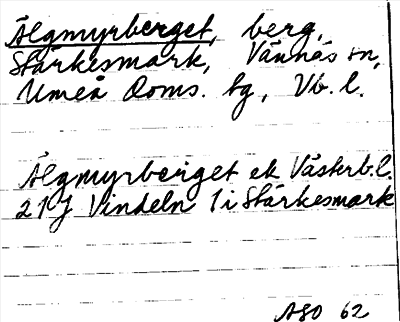 Älgmyrberget, berg,
Stärkesmark, Vännäs sn,
Umeå Doms. tg, Vb. l.
Älgmyrberget ek Västerb.l.
21 J Vindeln 1 i Stärkesmark
ASO 62